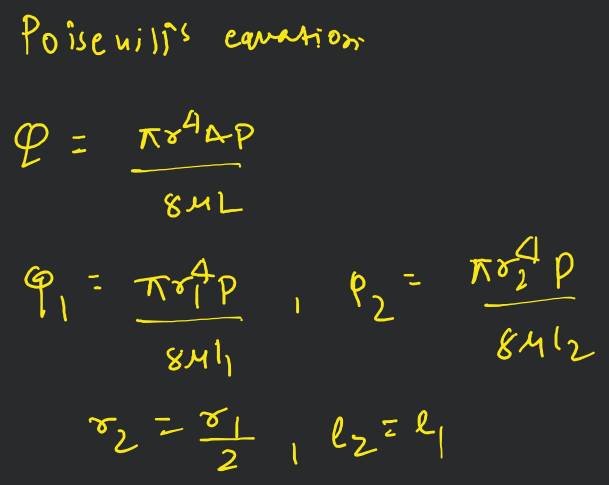 Poiseuill's equation
Q = πr⁴ΔP / 8μL
Q₁ = πr₁⁴P / 8μl₁ , Q₂ = πr₂⁴P / 8μl₂
r₂ = r₁/2 , l₂ = l₁